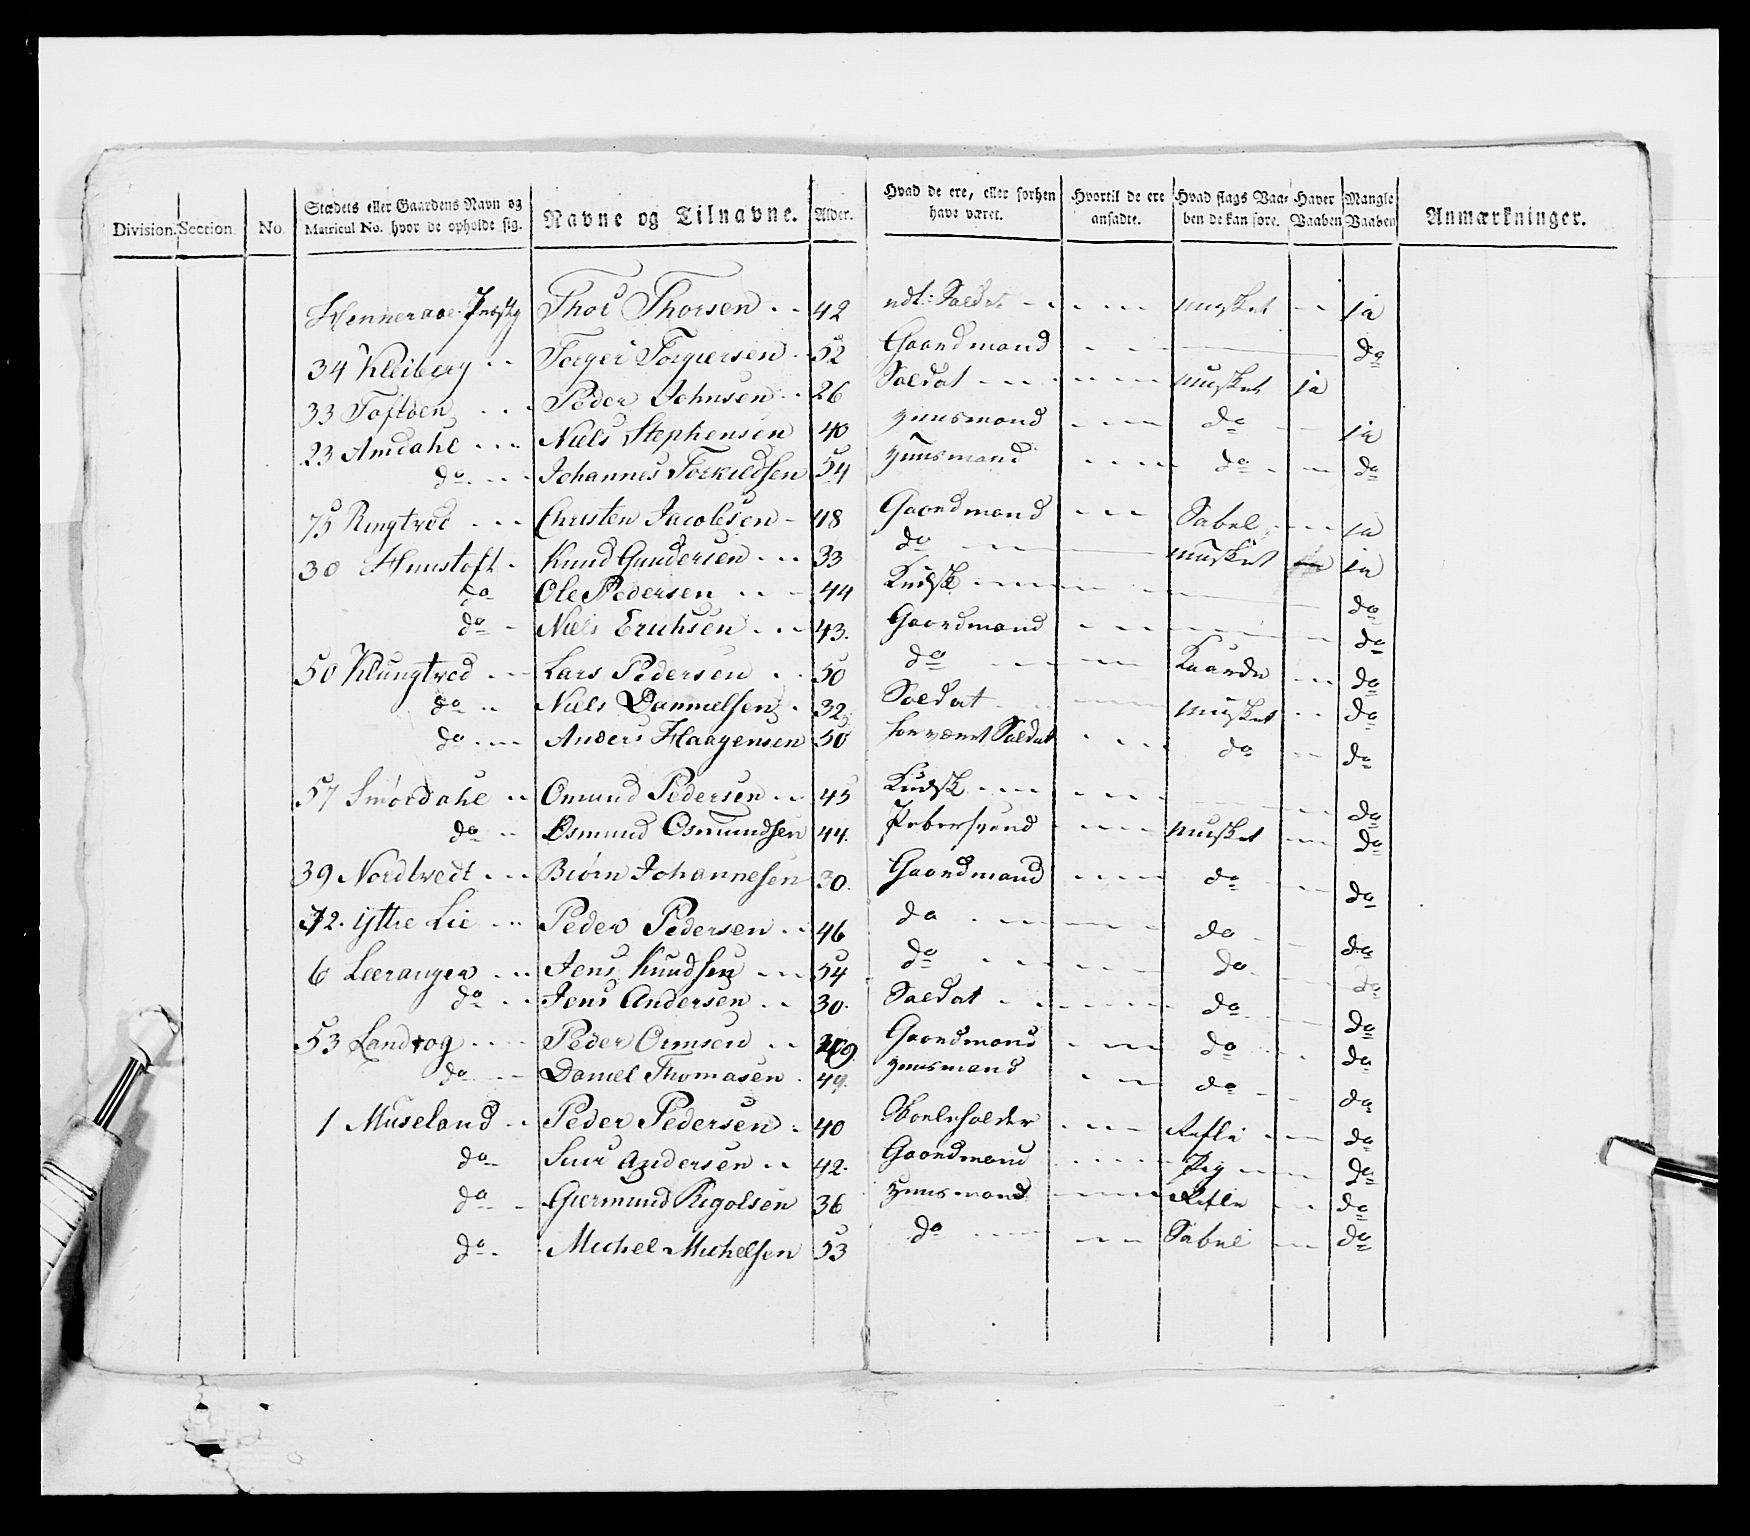 Division. Section. No. Stædets eller Gaardens Navn og Matricul No. hvor de opholde sig. Navne og Tilnavne. Alder. Hvad de ere, eller forhen have været. Hvortil de ere ansadte. Hvad slags Vaaben de kan føre. Haver Vaaben Mangle Vaaben Anmærkninger.
Thor Thorsen 42 ndl: Soldat musket ja
34 Kleiberg Torger Torgiersen 52 Gaardmand do
33 Toftoen Peder Johnsen 26 Soldat musket ja
23 Amdahl Niels Stephensen 40 Huusmand do ja
do Johannes Torkildsen 54 Huusmand do do
75 Ringtved Christen Jacobsen 48 Gaardmand Sabel ja
30 Huustoft Knud Gundersen 33 do musket ja
do Ole Pedersen 44 Kudsk do
do Niels Erichsen 43. Gaardmand do
50 Klungtved Lars Pedersen 50 do Kaarde do
do Niels Dannielsen 32 Soldat musket do
do Anders Haagensen 50 Soldat do do
57 Smørdahl Omund Pedersen 45 Kudsk do
do Osmund Osmundsen 44. Pebersvend musket do
39 Nordtvedt Biørn Johannesen 30. Gaardmand do do
72. Yttre Lie Peder Pedersen 46 do do do
6 Leeranger Jens Knudsen 54 do do do
do Jens Andersen 30. Soldat do do
53 Landrog Peder Ormsen Gaardmand do do
do Daniel Thomasen 49. Huusmand do do
1 Museland Peder Pedersen 40 Skoleholder Rifle do
do Siur Andersen 42. Gaardmand Pig do
do Giermund Rigolsen 36 Huusmand Rifle do
do Michel Michelsen 53 do Sabel do